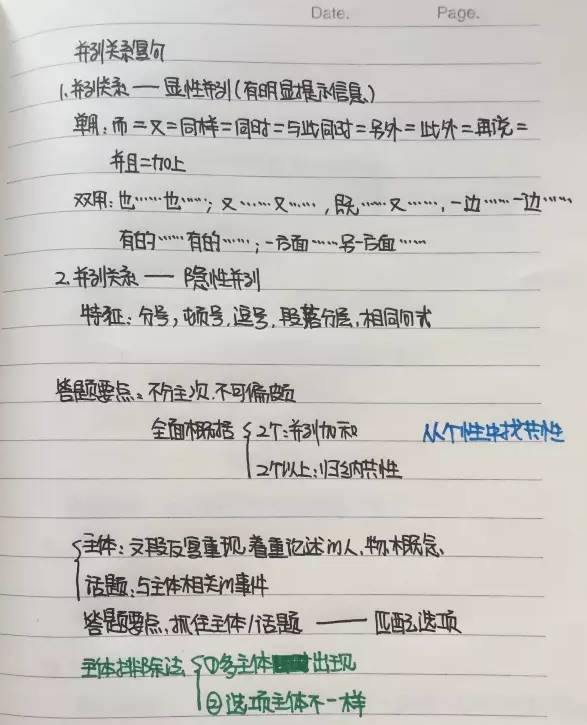 Date. Page.
并列关系复句
1.并列关系——显性并列(有明显提示信息)
单用:而=又=同样=同时=与此同时=另外=此外=再说=
并且=加上
双用:也……也……;又……又……,既……又……,一边……一边……
有的……有的……;一方面……另一方面……
2.并列关系——隐性并列
特征:分号,顿号,逗号,段落分层,相同句式
答题要点:不分主次,不可偏颇
全面概括 { 2个:并列加和 从个性中找共性
2个以上:归纳共性
{ 主体:文段反复重现,着重论述的人、物、概念、
话题:与主体相关的事件
答题要点,抓住主体/话题——匹配选项
主体排除法 { ①多主体 出现
②选项主体不一样